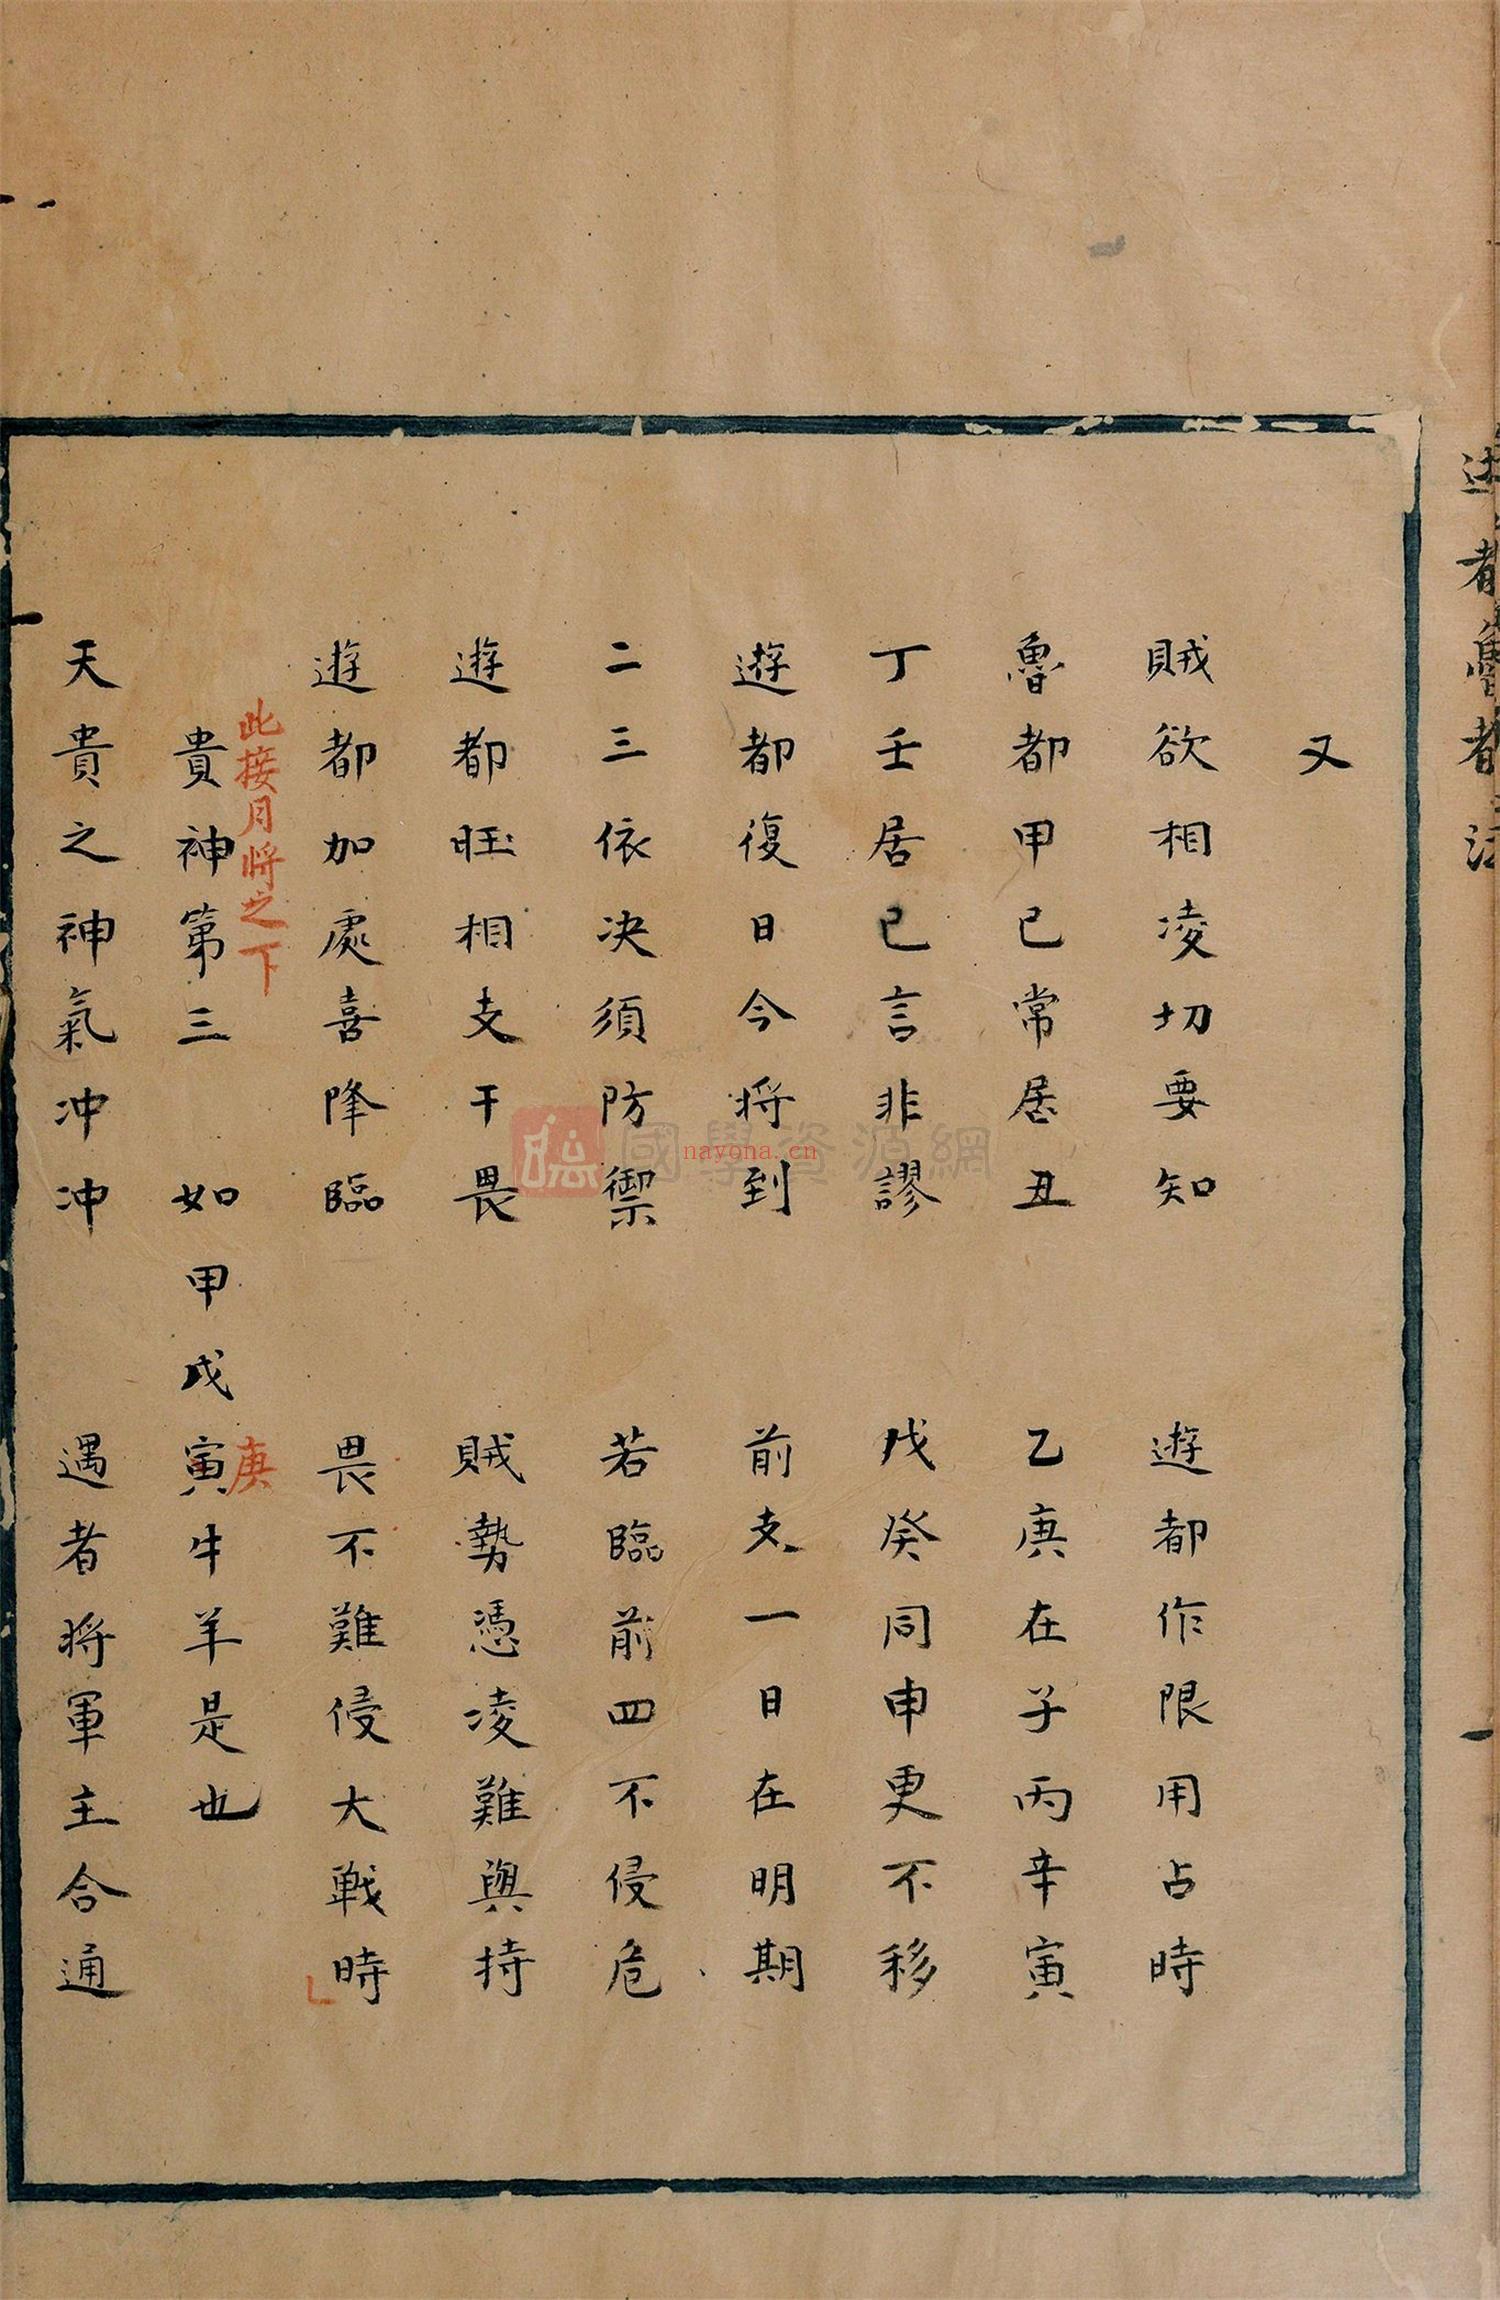 遊都魯都法
一
又
賊欲相凌切要知 遊都作限用占時
魯都甲已常居丑 乙庚在子丙辛寅
丁壬居已言非謬 戊癸同申更不移
遊都復日今将到 前支一日在明期
二三依决須防禦 若臨前四不侵危
遊都旺相支干畏 賊勢憑凌難與持
遊都加處喜降臨 畏不難侵大戰時
此接月将之下
貴神第三 如甲戊寅牛羊是也
庚
天貴之神氣冲冲 遇者将軍主合通
國學資源網
nayona.cn